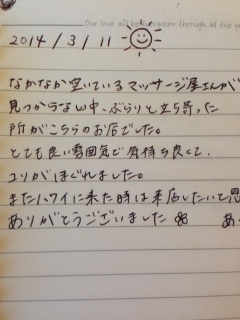 Our love will be evergreen through all the
2014/3/11
なかなか空いているマッサージ屋さんが
見つからない中、ぶらりと立ち寄った
所がこちらのお店でした。
とても良い雰囲気で気持ち良くて、
コリがほぐれました。
またハワイに来た時は来店したいと思
ありがとうございました あ